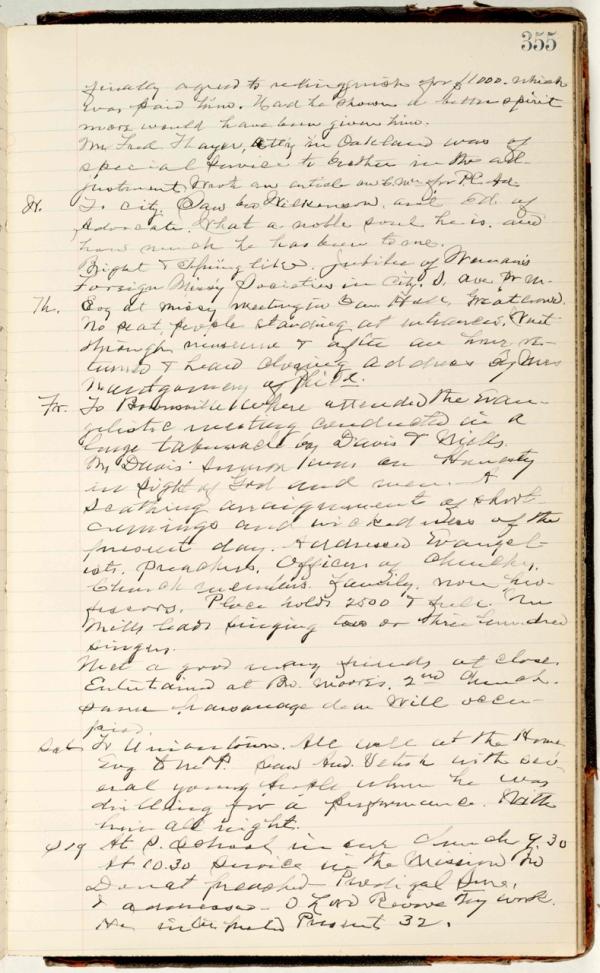 355
finally agreed to relinquish for $1000. which
was paid him. Had he shown a better spirit
more would have been given him.
Mr Fred Thayer, Atty in Oakland was of
special service to brother in the ad-
justment. Wrote an article on C. Mn for P.C. Ad.
W. To city. Saw Bro Wilkinson, and Ed. of
Advocate. What a noble soul he is. and
how much he has been to me.
Bright & Spring like. Jubilee of Woman's
Foreign Missy Societies in City.
Th. Evg at missy meeting in Hall. Great crowd.
No seat, people standing at entrances. Went
through museum & after an hour re-
turned & heard closing address by Mrs
Montgomery of
Fr. To where attended the evan-
gelistic meeting conducted in a
large tabernacle by Davis & Mills.
Mr Davis' sermon was on Honesty
in sight of God and men. A
scathing arraignment of short-
comings and wickedness of the
present day. Addressed Evangel-
ists, Preachers, Officers of Church,
Church members. Family, non pro-
fessors. Place holds 2500 & full. Mr
Mills leads singing two or three hundred
singers.
Met a good many friends at close.
Entertained at Bro. Moores, 2nd Church.
Same parsonage dear Will occu-
pied.
Sat To Uniontown. All well at the Home
Evg to Mt P. Saw And. Vensk with sev-
eral young people where he was
drilling for a performance. With
him all night.
S 19 At S. School in our church 9.30
At 10.30 service in the Mission
preached - Prodigal Son.
I addressed - O Lord Revive Thy work.
He interpreted Present 32.